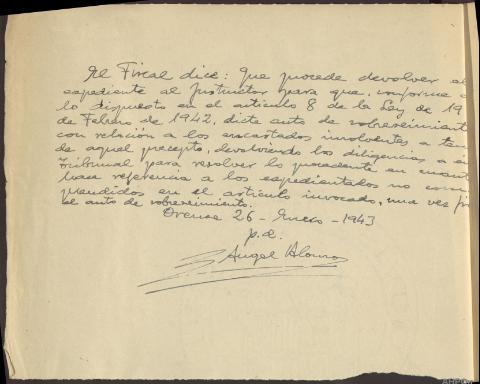 El Fiscal dice: Que procede devolver el
expediente al Instructor para que, conforme a
lo dispuesto en el articulo 8 de la Ley de 19
de Febrero de 1942, dicte auto de sobreseimiento
con relación a los encartados insolventes a
de aquel precepto, devolviendo las diligencias a
Tribunal para resolver lo procedente en
haga referencia a los expedientados no com
prendidos en el articulo invocado, una vez fir
el auto de sobreseimiento.
Orense 26 - Enero - 1943
p.d.
Angel Alonso